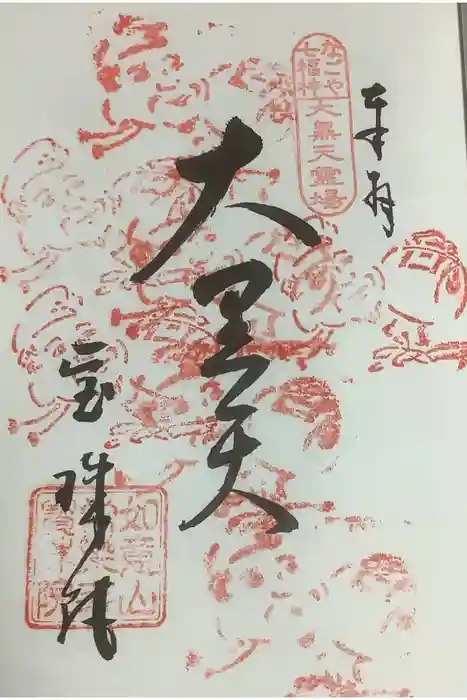 奉拝
なごや
七福神
大黒天霊場
大黒天
宝珠院
如意山
宝珠院